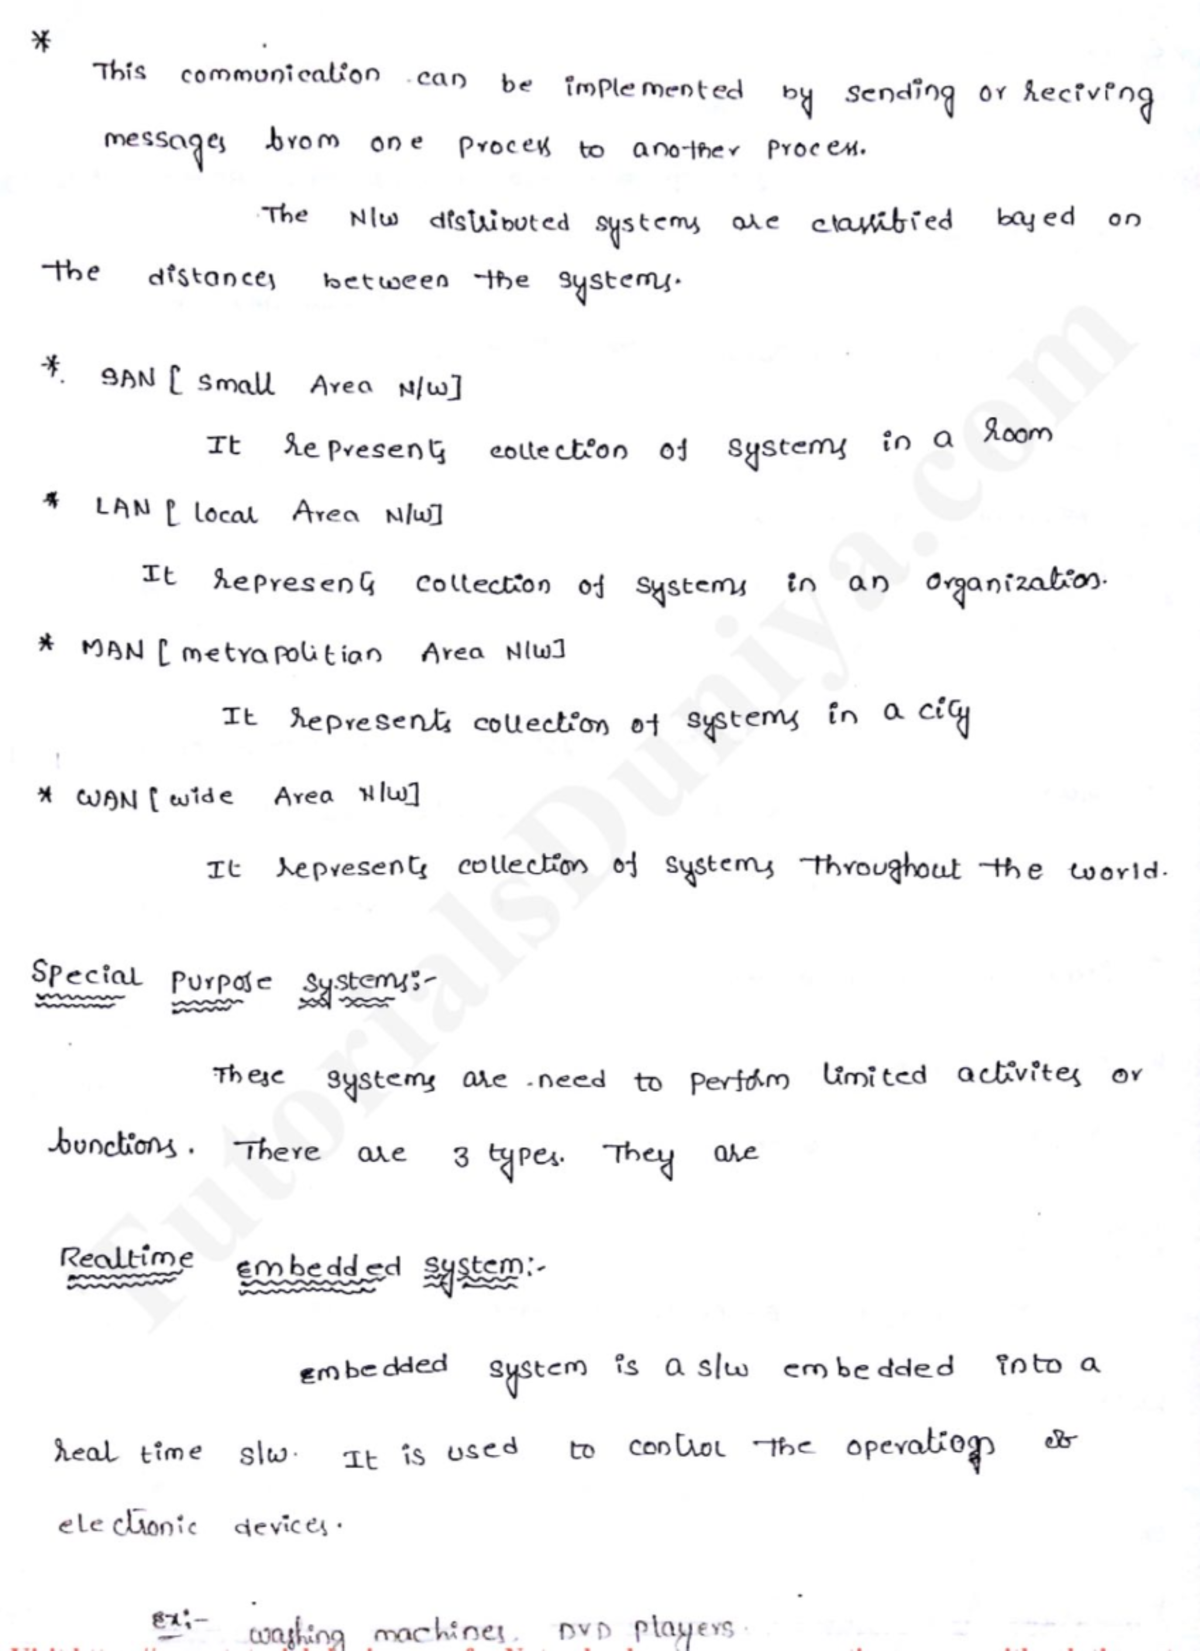 *
This communication can be implemented by sending or reciving
messages from one process to another process.
The N/w distributed systems are classified based on
the distances between the systems.
*. SAN [ Small Area N/w]
It represents collection of systems in a room
* LAN [ local Area N/w]
It represents collection of systems in an organization.
* MAN [ metrapolitian Area N/w]
It represents collection of systems in a city
* WAN [ wide Area N/w]
It represents collection of systems throughout the world.
Special Purpose Systems:-
These systems are need to perform limited activites or
functions. There are 3 types. They are
Realtime embedded system:-
embedded system is a s/w embedded into a
real time s/w. It is used to control the operation of
electronic devices.
ex:- washing machines, DVD players.
TutorialsDuniya.com